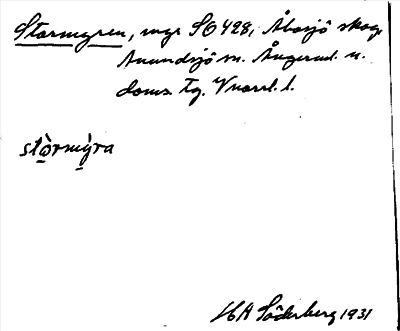 Stormyren, myr SO 428, Åbosjö skog,
Anundsjö sn. Ångerml. n.
doms. tg. Vnorrl. l.
stòrmýra
HA Söderberg 1931